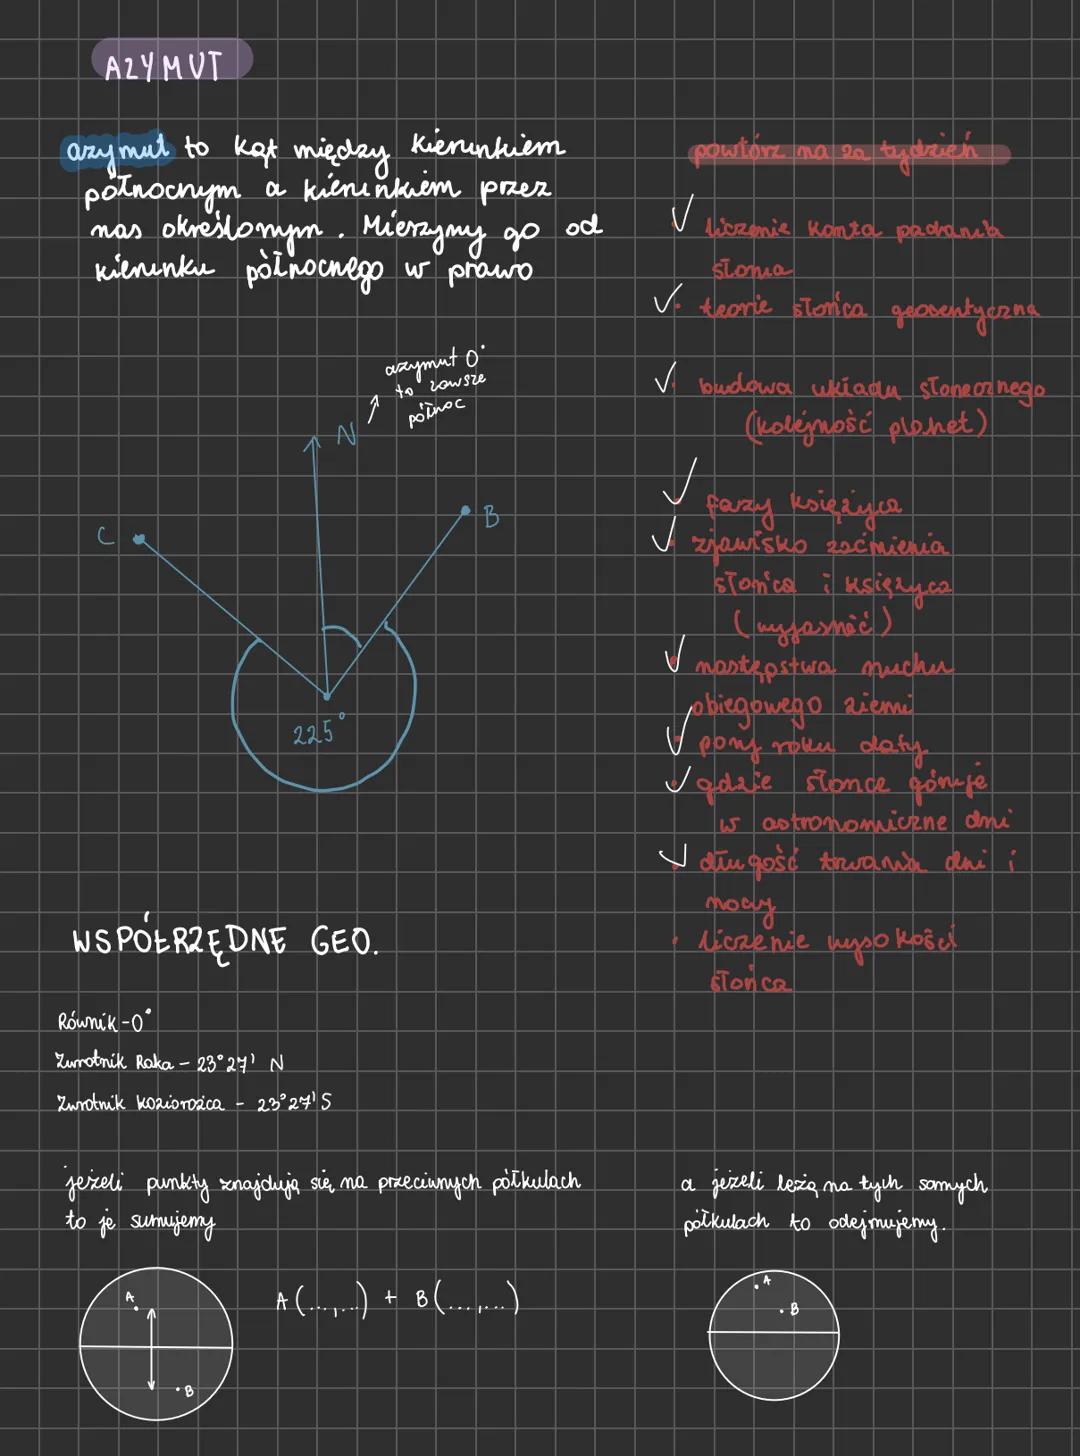 AZYMUT
azymut to kąt między kierunkiem
północnym a kierunkiem przez
nas określonym. Mierzymy go od
kierunku północnego w prawo
azymut 0°
to zawsze
północ
N
C
B
225°
powtórz na za tydzień
liczenie konta padania
słonia
teorie słońca geocentyczna
budowa układu słonecznego
(kolejność planet)
fazy księżyca
zjawisko zaćmienia
słońca i księżyca
(wyjaśnić)
następstwa ruchu
obiegowego ziemi
pory roku daty
gdzie słonce góruje
w astronomiczne dni
długość trwania dni i
nocy
liczenie wysokości
słońca
WSPÓŁRZĘDNE GEO.
Równik - 0°
Zwrotnik Raka - 23°27' N
Zwrotnik koziorożca - 23°27' S
jeżeli punkty znajdują się na przeciwnych półkulach
to je sumujemy
A
B
A (...,...) + B (...,...)
a jeżeli leżą na tych samych
półkulach to odejmujemy.
A
B